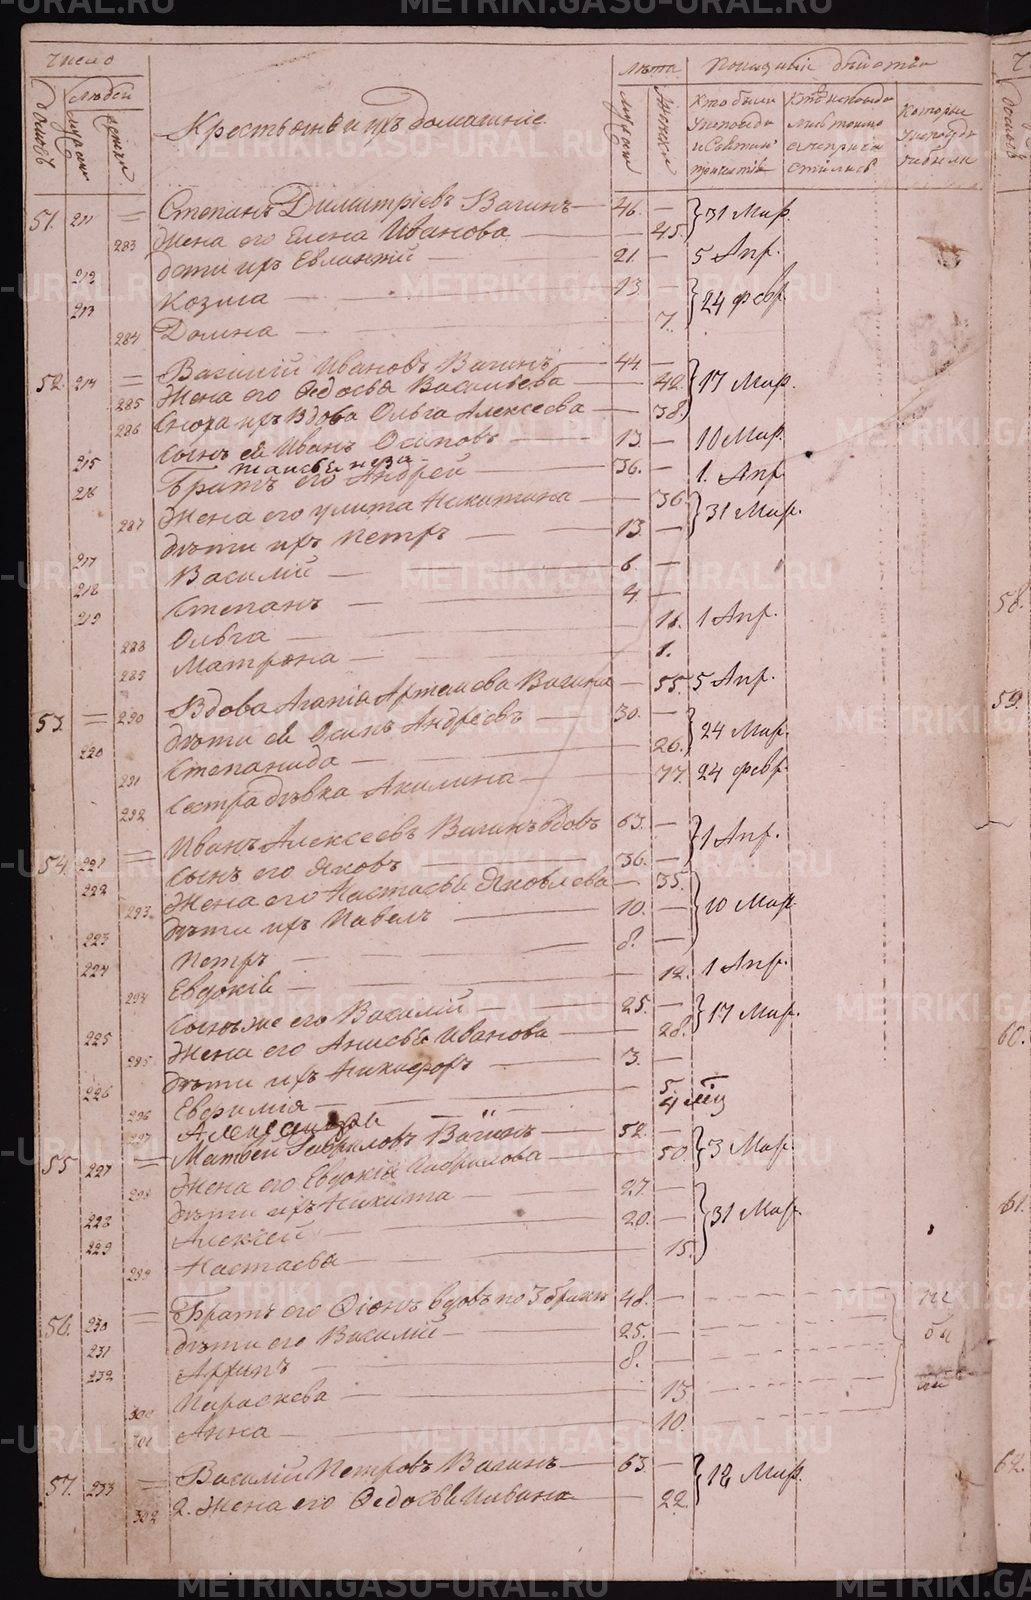 METRIKI.GASO-URAL.RU
Число
Лѣта
Показаніе дѣйства
домовъ
людей
мужеск
женск
Крестьяне и ихъ домашніе
Кто были у исповѣди и Святаго причастія
Которые у исповѣди не были
51. 211 Степанъ Димитріевъ Вагинъ — 46. — } 31 Мар.
283 Жена его Елена Иванова — 45.
212 дѣти ихъ Евлампій — 21. — 5 Апр.
213 Козма — 13. — } 24 февр.
284 Домна — 7.
52. 214 Василій Ивановъ Вагинъ — 44 — } 17 Мар.
285 Жена его Ѳедосья Васильева — 42.
286 Сноха ихъ вдова Ольга Алексеева — 38.
215 Сынъ ея Иванъ Осиповъ — 13 — 10 Мар.
216 Братъ его Андрей — 36. — 1. Апр
287 Жена его Улита Никитина — 36. } 31 Мар.
217 дѣти ихъ Петръ — 13 —
218 Василій — 6. —
219 Степанъ — 4 —
288 Ольга — 11. 1 Апр.
289 Матрона — 1.
53. 290 Вдова Агапія Артемова Вагина — 55. 5 Апр.
220 дѣти ея Осипъ Андреевъ — 30. — } 24 Мар.
291 Степанида — 26.
292 Сестра дѣвка Акилина — 77. 24 февр.
54. 221 Иванъ Алексеевъ Вагинъ вдовъ 63. — } 1 Апр.
222 Сынъ его Яковъ — 36. —
293 Жена его Настасья Яковлева — 35. } 10 Мар.
223 дѣти ихъ Павелъ — 10. —
224 Петръ — 8. —
294 Евдокія — 12. 1 Апр.
225 Сынъ же его Василій — 25. — } 17 Мар.
295 Жена его Анисья Иванова — 28.
226 дѣти ихъ Никифоръ — 3. —
296 Евфимія — 5.
297 Александра — 4 мѣц
55 227 Матвей Гавриловъ Вагинъ — 52. — } 3 Мар.
298 Жена его Евдокія Гаврилова — 50
228 дѣти ихъ Никита — 27. — } 31 Мар.
229 Алексей — 20. —
299 Настасья — 15.
56. 230 Братъ его Ѳіонъ вдовъ по 3 браки 48. — не
231 дѣти его Василій — 25. — бы
232 Архипъ — 8. ли
300 Параскева — 13
301 Анна — 10.
57. 233 Василій Петровъ Вагинъ — 63. — } 12 Мар.
302 2. Жена его Ѳедосья — 22.
58.
59.
60.
61.
62.